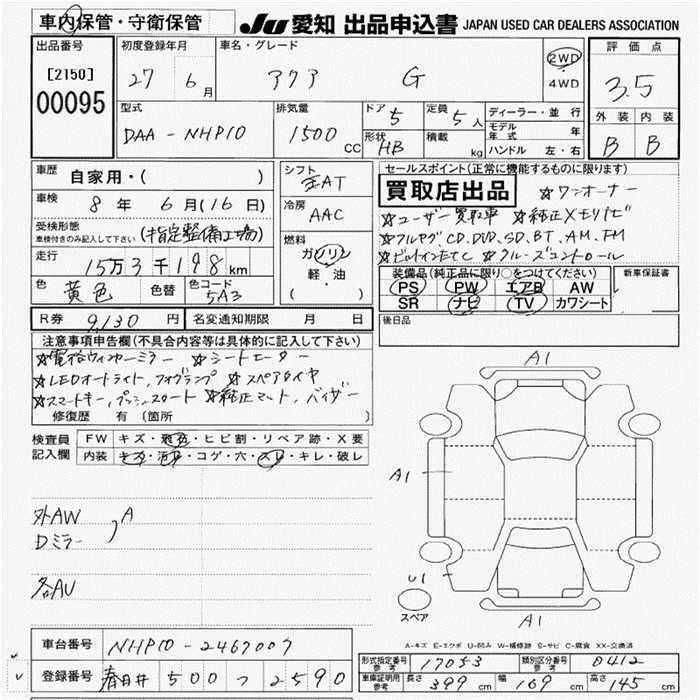 車内保管・守衛保管
JU 愛知 出品申込書 JAPAN USED CAR DEALERS ASSOCIATION
出品番号
[2150]
00095
初度登録年月
27 6月
車名・グレード
アクア G
2WD
4WD
評価点
3.5
外装 内装
B B
型式
DAA-NHP10
排気量
1500 CC
ドア 5
形状 HB
定員 5人
積載 kg
ディーラー・並行
モデル年式 年
ハンドル 左・右
車歴
自家用・( )
シフト
AT
車検
8年 6月(16日)
冷房
AAC
受検形態
車検付きのみ記入して下さい
(指定整備工場)
燃料
ガソリン
軽・油
( )
走行
15万3千198km
色
黄色
色替
色コード
5A3
R券 9,130円
名変通知期限 月 日
セールスポイント(正常に機能するものに限ります)
買取店出品
☆ワンオーナー
☆ユーザー買取車 ☆純正メモリナビ
☆フルセグ、CD、DVD、SD、BT、AM、FM
☆ビルトインETC ☆クルーズコントロール
装備品(純正品に限り○をつけてください)
PS PW エアB AW
SR ナビ TV カワシート
新車保証書
後日品
注意事項申告欄(不具合内容等は具体的に記入して下さい)
☆電格ウィンカーミラー ☆シートヒーター
☆LEDオートライト、フォグランプ ☆スペアタイヤ
☆スマートキー、プッシュスタート ☆純正マット、バイザー
修復歴 有(箇所
検査員
記入欄
FW キズ・飛石・ヒビ割・リペア跡・X要
内装 キズ・汚れ・コゲ・穴・スレ・キレ・破レ
外AW
Dミラー
A
各AU
A1
A1
U1
A1
スペア
A-キズ E-エクボ U-凹み W-補修跡 S-サビ C-腐食 XX-交換済
車台番号 NHP10-2467007
登録番号 春日井 500 つ 2590
型式指定番号 参考 17053
類別区分番号 参考 0412
車庫証明用 参考 長さ 399cm 幅 169cm 高さ 145cm